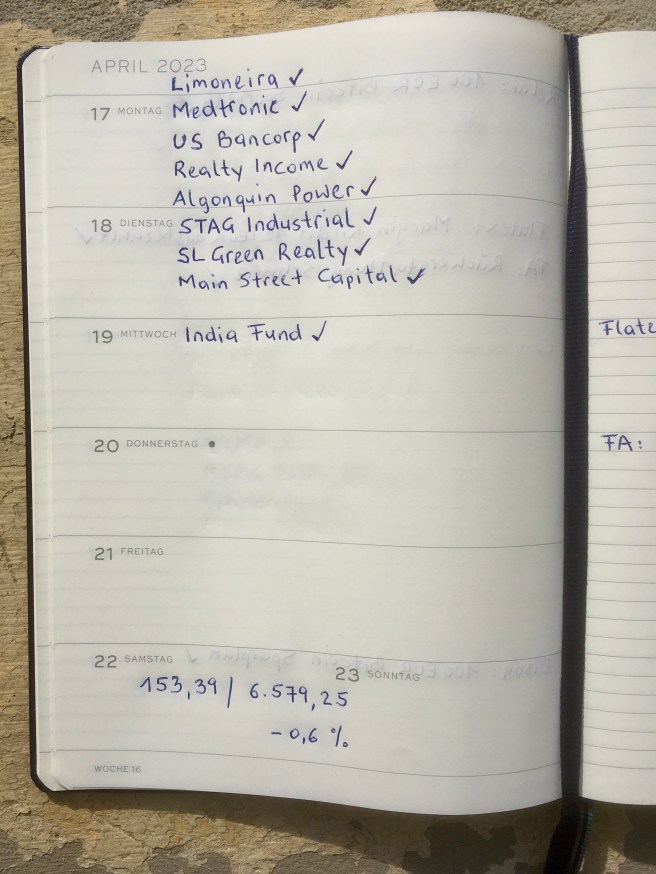 APRIL 2023
Limoneira ✓
17 MONTAG Medtronic ✓
US Bancorp ✓
Realty Income ✓
Algonquin Power ✓
18 DIENSTAG STAG Industrial ✓
SL Green Realty ✓
Main Street Capital ✓
19 MITTWOCH India Fund ✓
20 DONNERSTAG
21 FREITAG
22 SAMSTAG
23 SONNTAG
153,39 / 6.579,25
-0,6 %
WOCHE 16
Flate
FA: